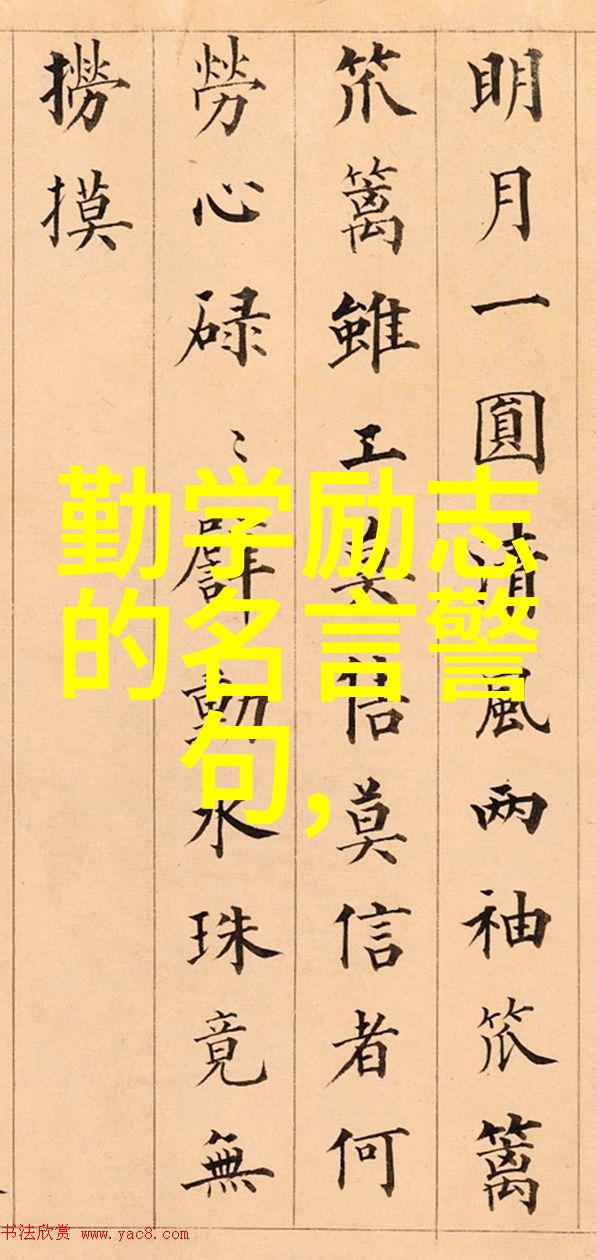 明月一圓清風两袖笊篱
笊篱雖工莫信者何
勞心碌〻動水珠竟無
撈摸
勤学励志
的名言警
句,
书法欣赏 www.yac8.com